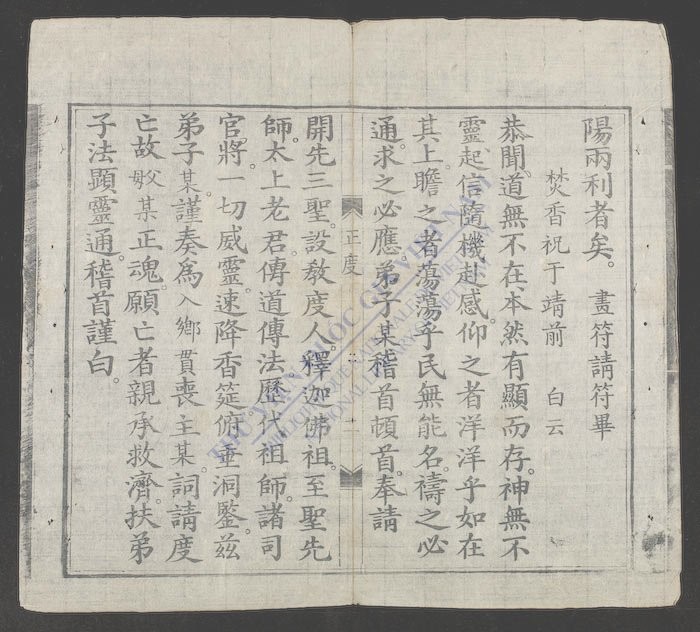 陽兩利者矣。 畫符請符畢
焚香祝于靖前 白云
恭聞。道無不在。本然有顯而存。神無不
靈。起信隨機赴感。仰之者洋洋乎如在
其上。瞻之者蕩蕩乎民無能名。禱之必
通。求之必應。弟子某稽首頓首。奉請
正度
開先三聖。設教度人。釋迦佛祖。至聖先
師。太上老君。傳道傳法。歷代祖師。諸司
官將。一切威靈。速降香筵。俯垂洞鑒。茲
弟子某謹奏爲入鄉貫喪主某。詞請度
亡故某正魂。願亡者親承救濟。扶弟
子法顯靈通。稽首謹白。
THƯ VIỆN QUỐC GIA VIỆT NAM